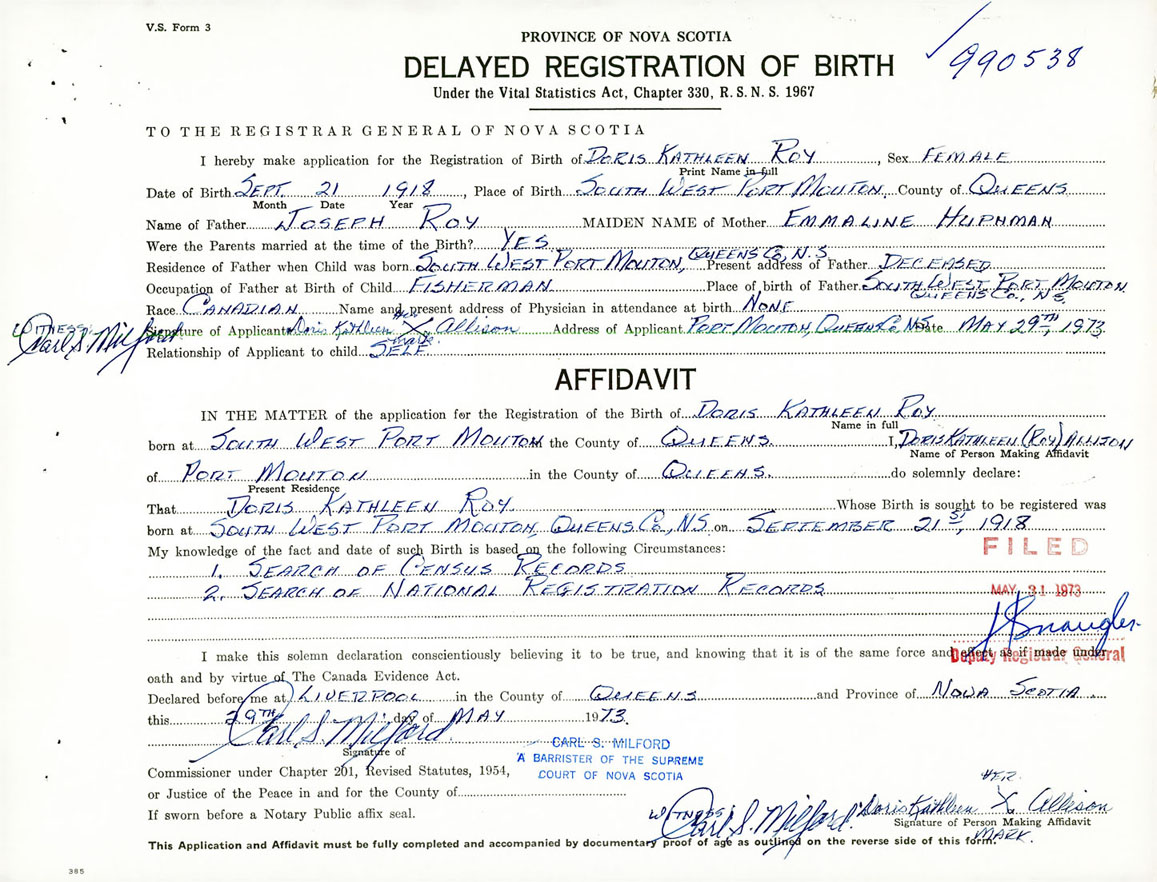 V.S. Form 3
PROVINCE OF NOVA SCOTIA
990538
DELAYED REGISTRATION OF BIRTH
Under the Vital Statistics Act, Chapter 330, R.S.N.S. 1967
TO THE REGISTRAR GENERAL OF NOVA SCOTIA
I hereby make application for the Registration of Birth of DORIS KATHLEEN ROY, Sex FEMALE
Print Name in full
Date of Birth SEPT. 21 1918, Place of Birth SOUTH WEST PORT MOUTON, County of QUEENS
Month Date Year
Name of Father JOSEPH ROY MAIDEN NAME of Mother EMMALINE HUPHMAN
Were the Parents married at the time of the Birth? YES
Residence of Father when Child was born SOUTH WEST PORT MOUTON, QUEENS CO., N.S. Present address of Father DECEASED
Occupation of Father at Birth of Child FISHERMAN Place of birth of Father SOUTH WEST PORT MOUTON
QUEENS CO., NS,
Race CANADIAN Name and present address of Physician in attendance at birth NONE
WITNESS: Carl S. Milford
Signature of Applicant Doris Kathleen X Allison Address of Applicant PORT MOUTON, QUEENS CO, NS Date MAY 29TH, 1973
mark
Relationship of Applicant to child SELF
AFFIDAVIT
IN THE MATTER of the application for the Registration of the Birth of DORIS KATHLEEN ROY
Name in full
born at SOUTH WEST PORT MOUTON the County of QUEENS. I, DORIS KATHLEEN (ROY) ALLISON
Name of Person Making Affidavit
of PORT MOUTON in the County of QUEENS. do solemnly declare:
Present Residence
That DORIS KATHLEEN ROY Whose Birth is sought to be registered was
born at SOUTH WEST PORT MOUTON, QUEENS CO, NS on SEPTEMBER 21ST, 1918
My knowledge of the fact and date of such Birth is based on the following Circumstances:
FILED
1. SEARCH OF CENSUS RECORDS
2. SEARCH OF NATIONAL REGISTRATION RECORDS
MAY 31 1973
Deputy Registrar General
I make this solemn declaration conscientiously believing it to be true, and knowing that it is of the same force and effect as if made under
oath and by virtue of The Canada Evidence Act.
Declared before me at LIVERPOOL in the County of QUEENS and Province of NOVA SCOTIA
this 29TH day of MAY 1973.
Carl S. Milford
Signature of
CARL S. MILFORD
A BARRISTER OF THE SUPREME
COURT OF NOVA SCOTIA
Commissioner under Chapter 201, Revised Statutes, 1954,
or Justice of the Peace in and for the County of
If sworn before a Notary Public affix seal.
HER
WITNESS: Carl S. Milford Doris Kathleen X Allison
Signature of Person Making Affidavit
MARK.
This Application and Affidavit must be fully completed and accompanied by documentary proof of age as outlined on the reverse side of this form.
385